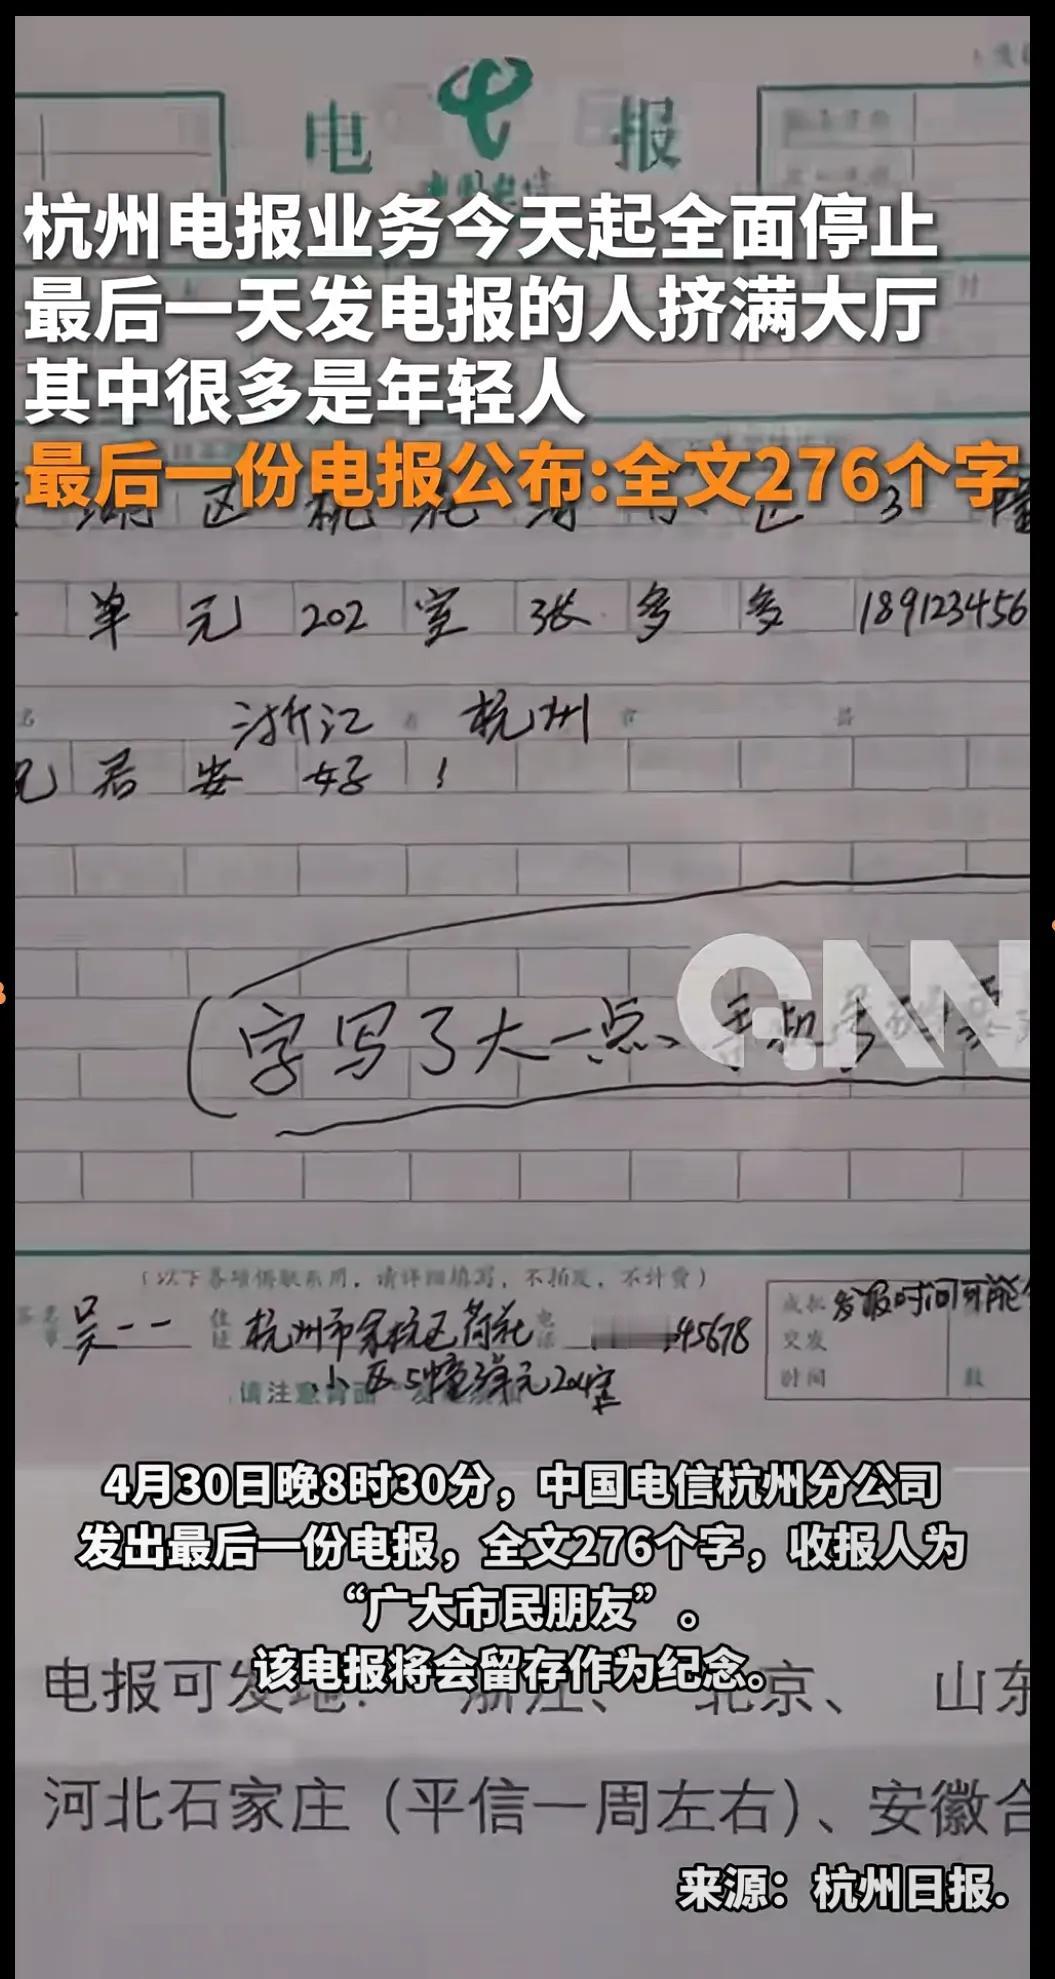 电 报
中国电信
杭州电报业务今天起全面停止
最后一天发电报的人挤满大厅
其中很多是年轻人
最后一份电报公布:全文276个字
区 桃 花 3 幢
单 元 202 室 张 多 多 189123456
名 浙江 省 杭州 市 县
见 君 安 好 !
QNN
(字写了大一点、手机号码
(以下各项供联系用，请详细填写，不拍发，不计费)
签名 吴一一 住址 杭州市余杭区荷花 电话 45678
小区5幢3单元204室
发报时间可能
交发
时间
请注意背面
4月30日晚8时30分，中国电信杭州分公司
发出最后一份电报，全文276个字，收报人为
“广大市民朋友”。
该电报将会留存作为纪念。
电报可发地：浙江、北京、山东
河北石家庄（平信一周左右）、安徽合
来源：杭州日报.